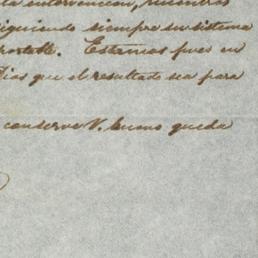 la intervencion, mientras
siguiendo siempre su sistema
Estamos pues en
Dios que el resultado sea para
conserve V. bueno queda